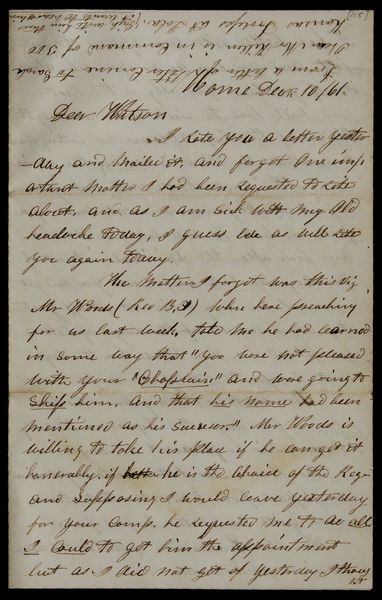 Home Dec 10/61.
Dear Watson
I rote you a letter yester
-day and mailed it. and forgot one imp-
ortant matter I had been requested to rite
about, and as I am sick with my old
headache today, I guess Ide as well rite
you again today.
The matter I forgot was this viz
Mr Woods (Rev B,) when here preaching
for us last week, told me he had learned
in some way that "you were not pleased
with your "Chaplain" and were going to
Ship him, and that his name had been
mentioned as his successor." Mr Woods is
willing to take his place if he can get it
honerably, if he is the choice of the Reg-
and Supposing I would leave yesterday
for your Camp, he requested me to do all
I could to get him the appointment
but as I did not get of yesterday I thoug
ht
From a letter of Sister to Sarah
Dear Mr is in command of 300
troops at Lola.